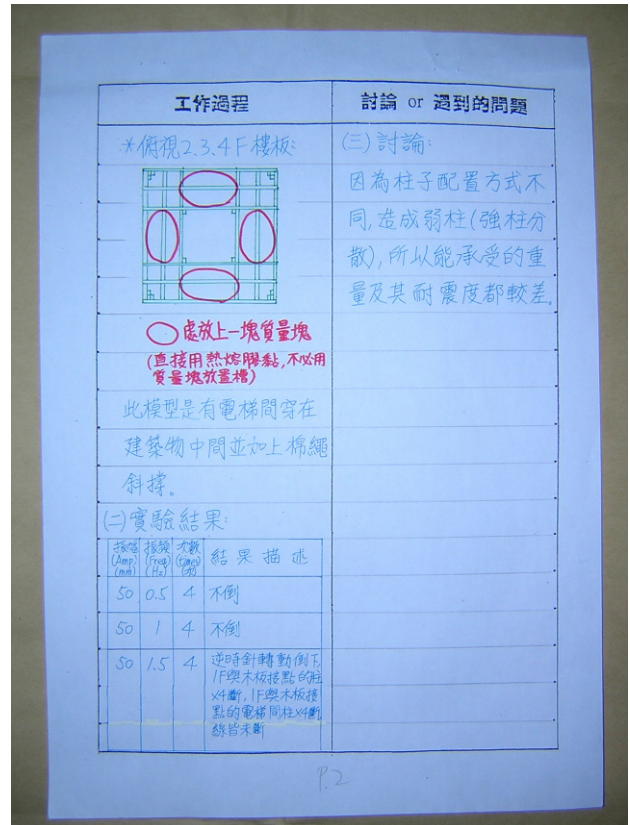 工作過程
討論 or 遇到的問題
※俯視2.3.4F樓板:
○處放上一塊質量塊
(直接用熱熔膠黏,不必用
質量塊放置檔)
此模型是有電梯間穿在
建築物中間並加上棉繩
斜撐。
(二)實驗結果:
振幅(Amp)(mm) 振頻(Freq)(Hz) 次數(times)(次) 結果描述
50 0.5 4 不倒
50 1 4 不倒
50 1.5 4 逆時針轉動倒下,
1F與木板接點的柱
x4斷,1F與木板接
點的電梯間柱x4斷
線皆未斷
(三)討論:
因為柱子配置方式不
同,造成弱柱(強柱分
散),所以能承受的重
量及其耐震度都較差。
P.2